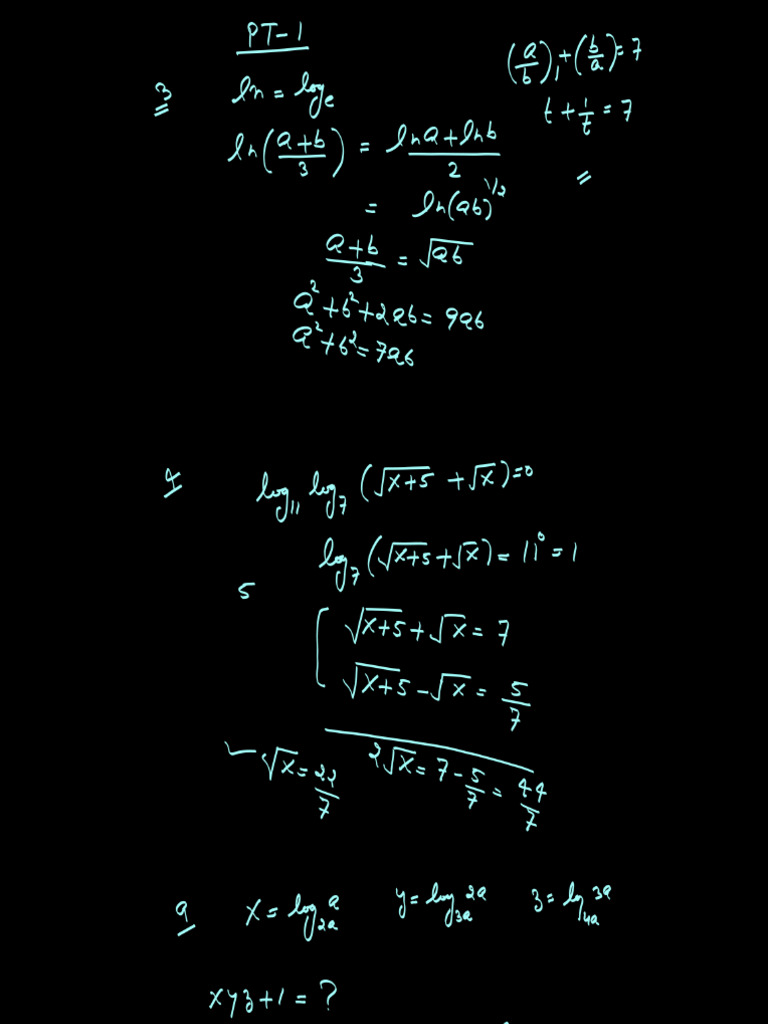 PT-1
3
ln = logₑ
ln((a+b)/3) = (lna + lnb)/2
= ln(ab)^(1/2)
(a+b)/3 = √(ab)
a² + b² + 2ab = 9ab
a² + b² = 7ab
(a/b) + (b/a) = 7
t + 1/t = 7
log₁₁ log₇ (√(x+5) + √x) = 0
log₇ (√(x+5) + √x) = 11⁰ = 1
5
√(x+5) + √x = 7
√(x+5) - √x = 5/7
2√x = 7 - 5/7 = 44/7
√x = 22/7
9
x = log_{2a} a    y = log_{3a} 2a    z = log_{4a} 3a
xyz + 1 = ?